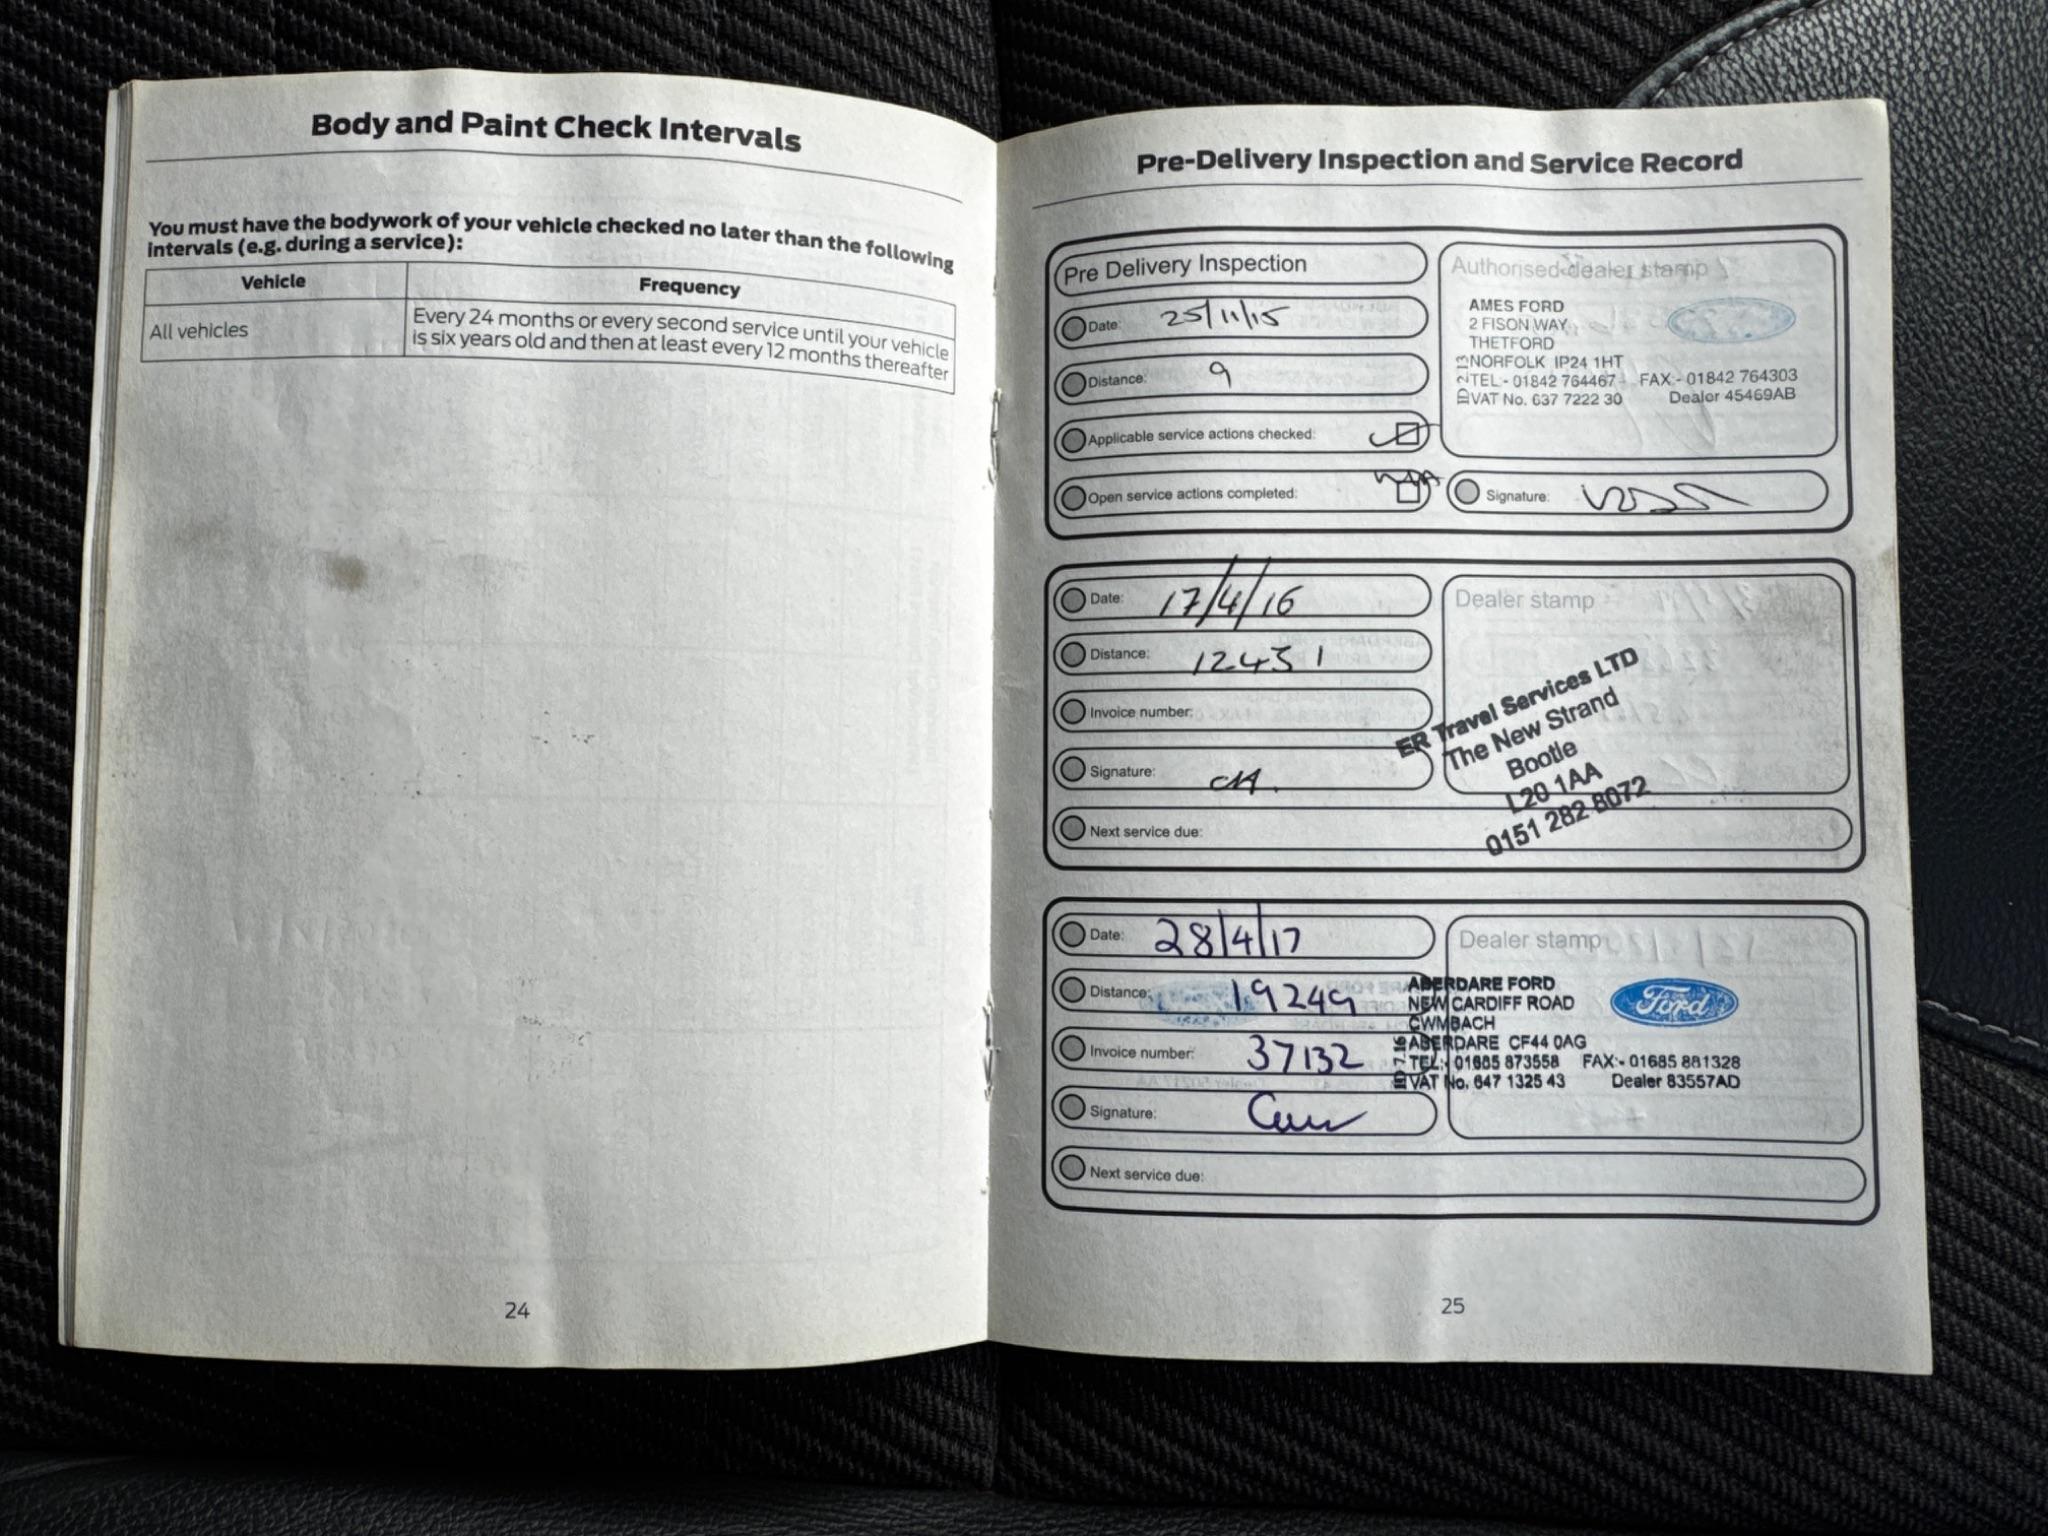 Body and Paint Check Intervals
You must have the bodywork of your vehicle checked no later than the following
intervals (e.g. during a service):
Vehicle
Frequency
All vehicles
Every 24 months or every second service until your vehicle
is six years old and then at least every 12 months thereafter
24
Pre-Delivery Inspection and Service Record
Pre Delivery Inspection
Date: 25/11/15
Distance: 9
Applicable service actions checked:
Open service actions completed:
Authorised dealer stamp
AMES FORD
2 FISON WAY
THETFORD
NORFOLK IP24 1HT
TEL:- 01842 764467 FAX:- 01842 764303
VAT No. 637 7222 30 Dealer 45469AB
Signature:
Date: 17/4/16
Distance: 12431
Invoice number:
Signature:
Next service due:
Dealer stamp
ER Travel Services LTD
The New Strand
Bootle
L20 1AA
0151 282 8072
Date: 28/4/17
Distance: 19249
Invoice number: 37132
Signature:
Next service due:
Dealer stamp
ABERDARE FORD
NEW CARDIFF ROAD
CWMBACH
ABERDARE CF44 0AG
TEL:- 01685 873558 FAX:- 01685 881328
VAT No. 647 1325 43 Dealer 83557AD
Ford
25